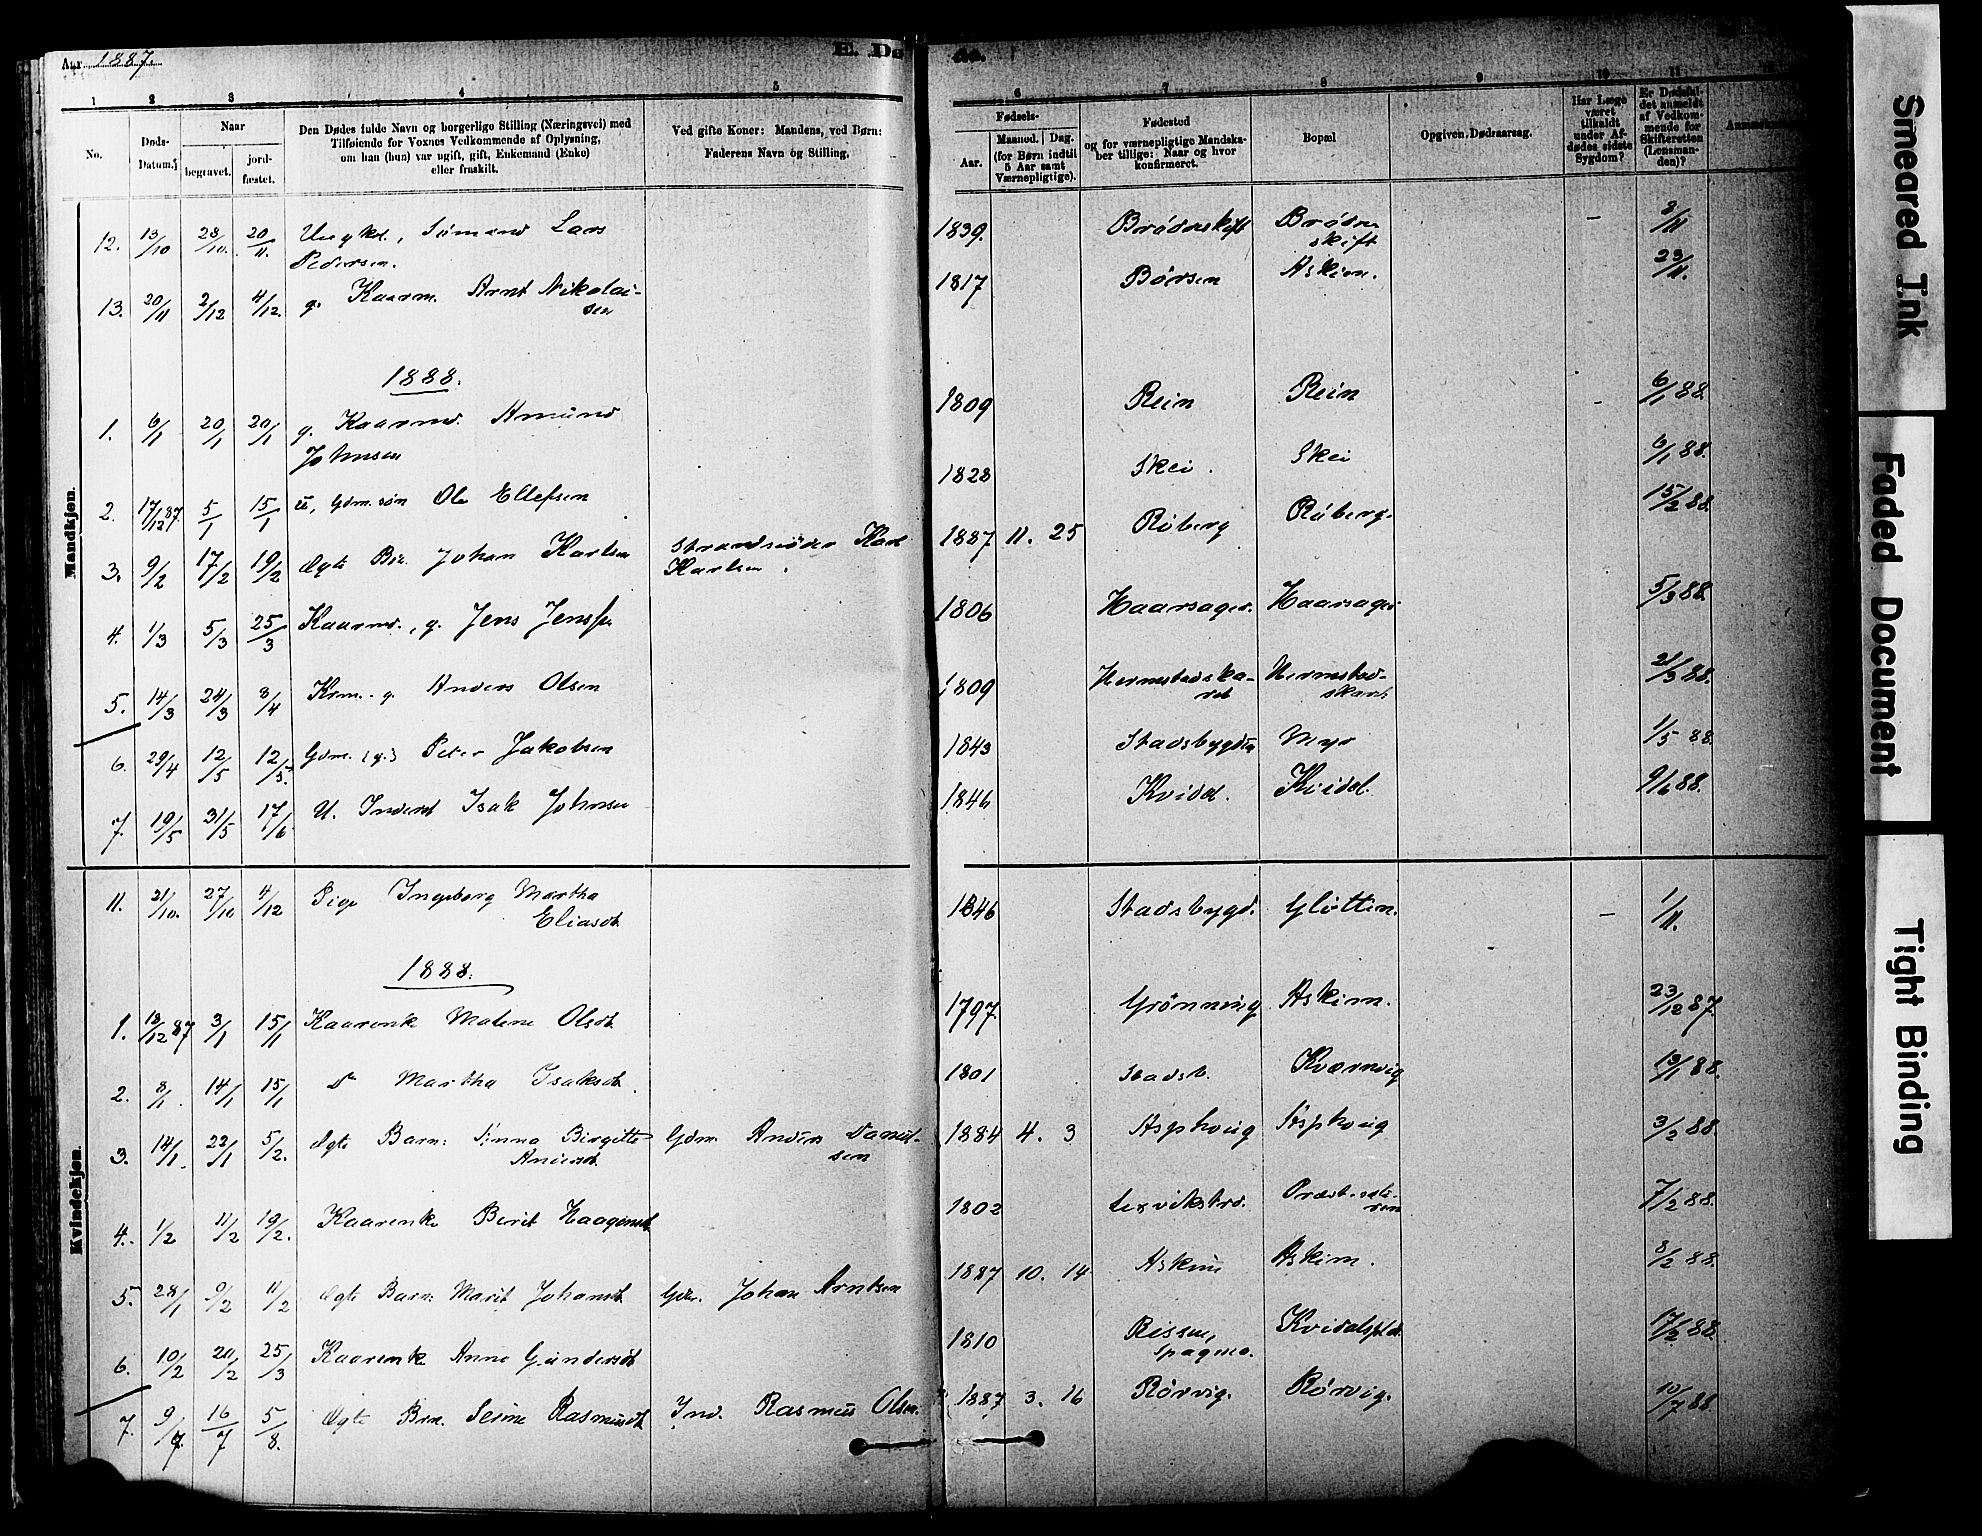 Aar 1887.
E. Dø
de.
1 2 3 4 5 6 7 8 9 10 11
No.
Døds-Datum.
Naar
begravet.
jord-fæstet.
Den Dødes fulde Navn og borgerlige Stilling (Næringsvei) med
Tilføiende for Voxnes Vedkommende af Oplysning,
om han (hun) var ugift, gift, Enkemand (Enke)
eller fraskilt.
Ved gifte Koner: Mandens, ved Børn:
Faderens Navn og Stilling.
Fødsels-
Aar.
Maaned. Dag.
(for Børn indtil
5 Aar samt
Værnepligtige).
Fødested
og for værnepligtige Mandska-
ber tillige: Naar og hvor
konfirmeret.
Bopæl
Opgiven Dødsaarsag.
Har Læge
været
tilkaldt
under Af-
dødes sidste
Sygdom?
Er Dødsfal-
det anmeldt
af Vedkom-
mende for
Skifteretten
(Lensman-
den)?
Mandkjøn.
12. 13/10 28/10. 20/11. Ungkl., Sømand Lars 1839. Brødreskift Brødre - 8/11
Pedersen. skift
13. 20/11 2/12 4/12. g. Kaarm. Arnt Nikolai- 1817 Børsen Askim. 23/11.
sen
1888.
1. 6/1 20/1 20/1 g. Kaarmd. Amund 1809 Rein Rein - 6/1 88.
Johnsen
2. 17/12 87. 5/1 15/1 u, Gdm.søn Ole Ellefsen 1828 Skei. Skei 6/1 88.
3. 9/2 17/2 19/2 Ægte Brn. Johan Karlsen Strandsidder Karl 1887 11. 25 Røberg Røberg. 15/2 88.
Karlsen.
4. 1/3 5/3 25/3 Kaarmd., g. Jens Jensen 1806 Haarsager. Haarsager 5/3 88.
5. 14/3 24/3 8/4 Krm. g. Anders Olsen 1809 Hermstadska- Hermstad- 21/3 88.
ret skaret
6. 29/4 12/5 12/5. Gdm. (g.) Peter Jakobsen 1843 Stadsbygden Myr 1/5 88.
7. 19/5 31/5 17/6 U. Inderst Isak Johnsen 1846 Kvidal. Kvidal. 9/6 88.
Kvindekjøn.
11. 21/10. 27/10 4/12 Pige Ingeborg Martha 1846 Stadsbygd. Gløtten. - 1/11.
Eliasdt.
1888.
1. 18/12 87 3/1 15/1 Kaarenk Malene Olsdt. 1797. Grønning Askim. 23/12 87.
2. 8/1. 14/1 15/1 Do Martha Isaksdt. 1801 Stadsb. Kværnvig 13/1 88.
3. 14/1. 23/1 5/2. Ægte Barn: Anna Birgitte Gdm. Anders Daniel- 1884 4. 3 Asphoug Asphoug 3/2 88.
Andersdt. sen
4. 1/2 11/2 19/2. Kaarenke Berit Haagensdt. 1802 Lexvikstrd. 7/2 88.
5. 28/1 9/2 11/2 Ægte Barn: Marit Johansdt. Gdm. Johan Arntsen 1887 10. 14 Askim Askim. 8/2 88.
6. 10/2 20/2 25/3 Kaarenk Anne Gundersdt. 1810 Rissen, Kvidalspld. 17/2 88.
7. 9/7. 16/7 5/8. Ægte Brn. Serine Rasmusdt. Ind. Rasmus Olsen. 1887 3. 16 Rørvig. Rørvig. 10/7 88.
Smeared Ink
Faded Document
Tight Binding